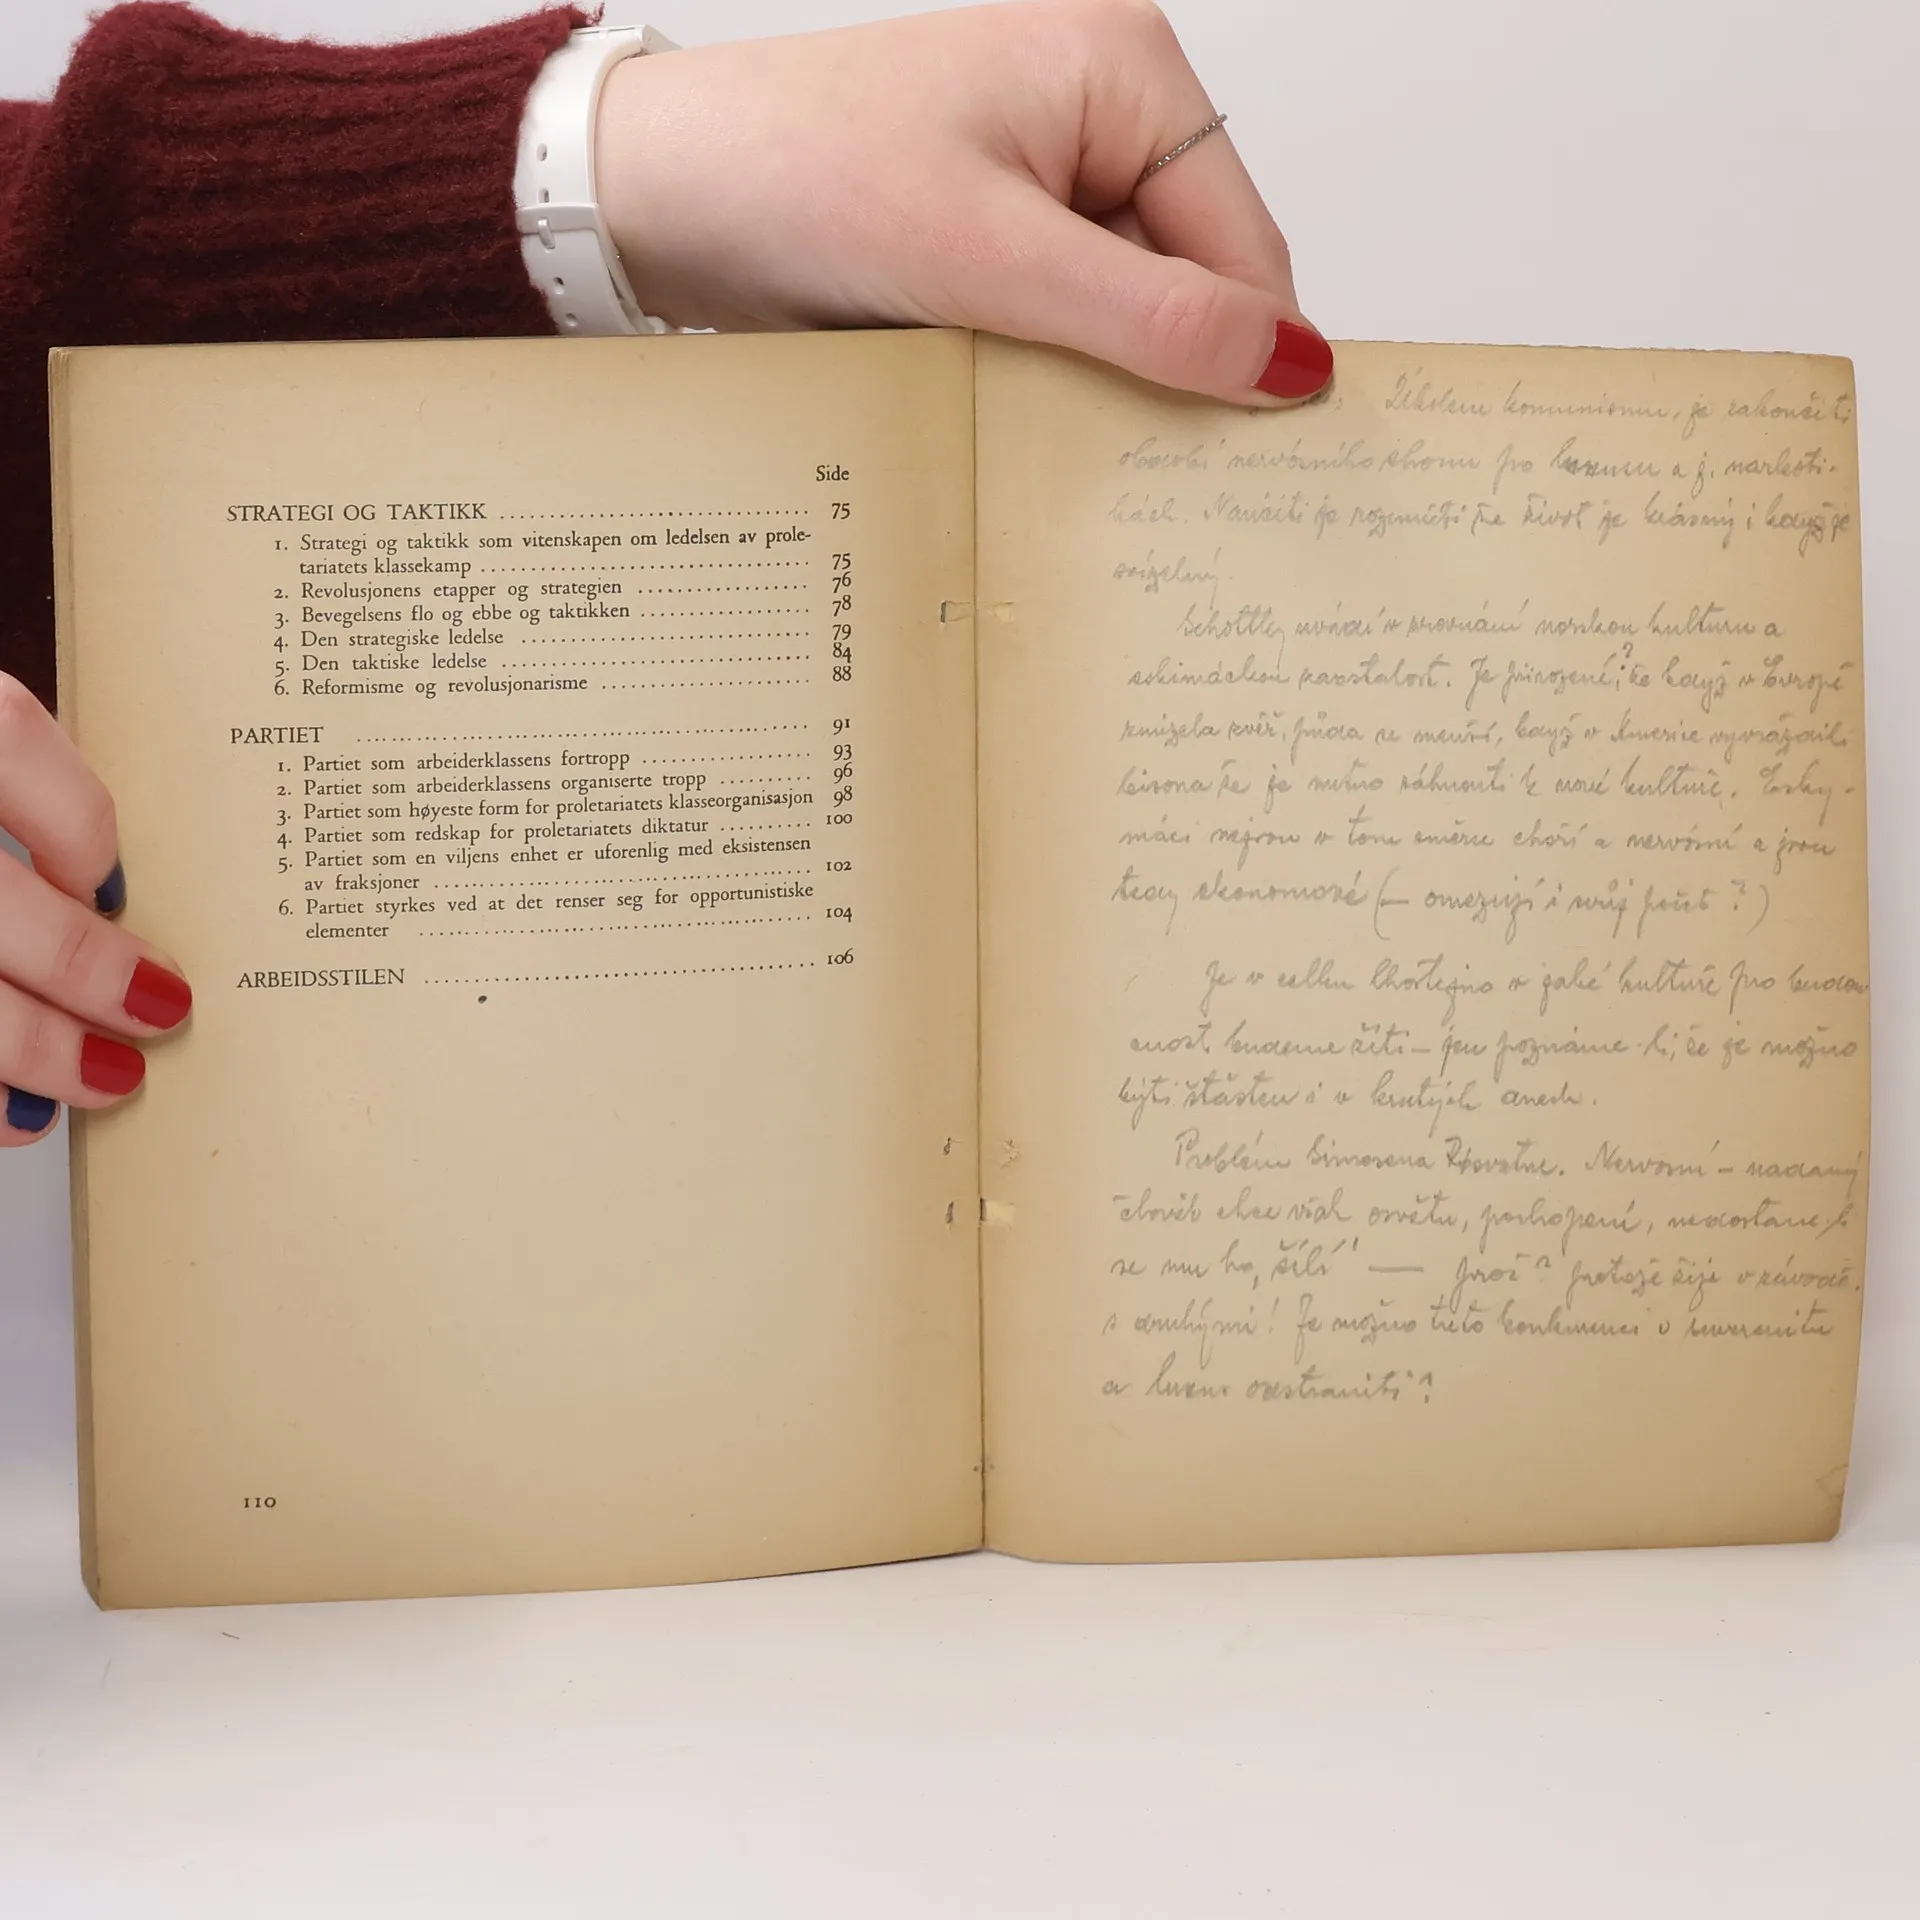 Side
STRATEGI OG TAKTIKK 75
1. Strategi og taktikk som vitenskapen om ledelsen av prole-
tariatets klassekamp 75
2. Revolusjonens etapper og strategien 76
3. Bevegelsens flo og ebbe og taktikken 78
4. Den strategiske ledelse 79
5. Den taktiske ledelse 84
6. Reformisme og revolusjonarisme 88
PARTIET 91
1. Partiet som arbeiderklassens fortropp 93
2. Partiet som arbeiderklassens organiserte tropp 96
3. Partiet som høyeste form for proletariatets klasseorganisasjon 98
4. Partiet som redskap for proletariatets diktatur 100
5. Partiet som en viljens enhet er uforenlig med eksistensen
av fraksjoner 102
6. Partiet styrkes ved at det renser seg for opportunistiske
elementer 104
ARBEIDSSTILEN 106
110
komunismu, je zakončiti
období nervósního shonu po luxusu a j. narkoti-
kách. Naučiti je rozuměti že život je krásný i když je
svízelný.
Schottky uvádí v srovnání norskou kulturu a
eskimáckou zaostalost. Je přirozené, že když v Evropě
zmizela zvěř, půda se menší, když v Americe vyvraždili
bisona že je nutno sáhnouti k nové kultuře. Esky-
máci nejsou v tom směru choří a nervósní a jsou
tedy ekonomové (— omezují i svůj počet?)
Je v celku lhostejno v jaké kultuře pro budou
cnost budeme žíti — jen poznáme-li, že je možno
býti šťasten i v krutých dnech.
Problém Simosena. Nervosní — nadaný
člověk chce však osvětu, pochopení, nedostane-li
se mu ho, šílí — proč? protože žije v závodě
s druhými! Je možno tuto konkurenci v
a luxus odstraniti?